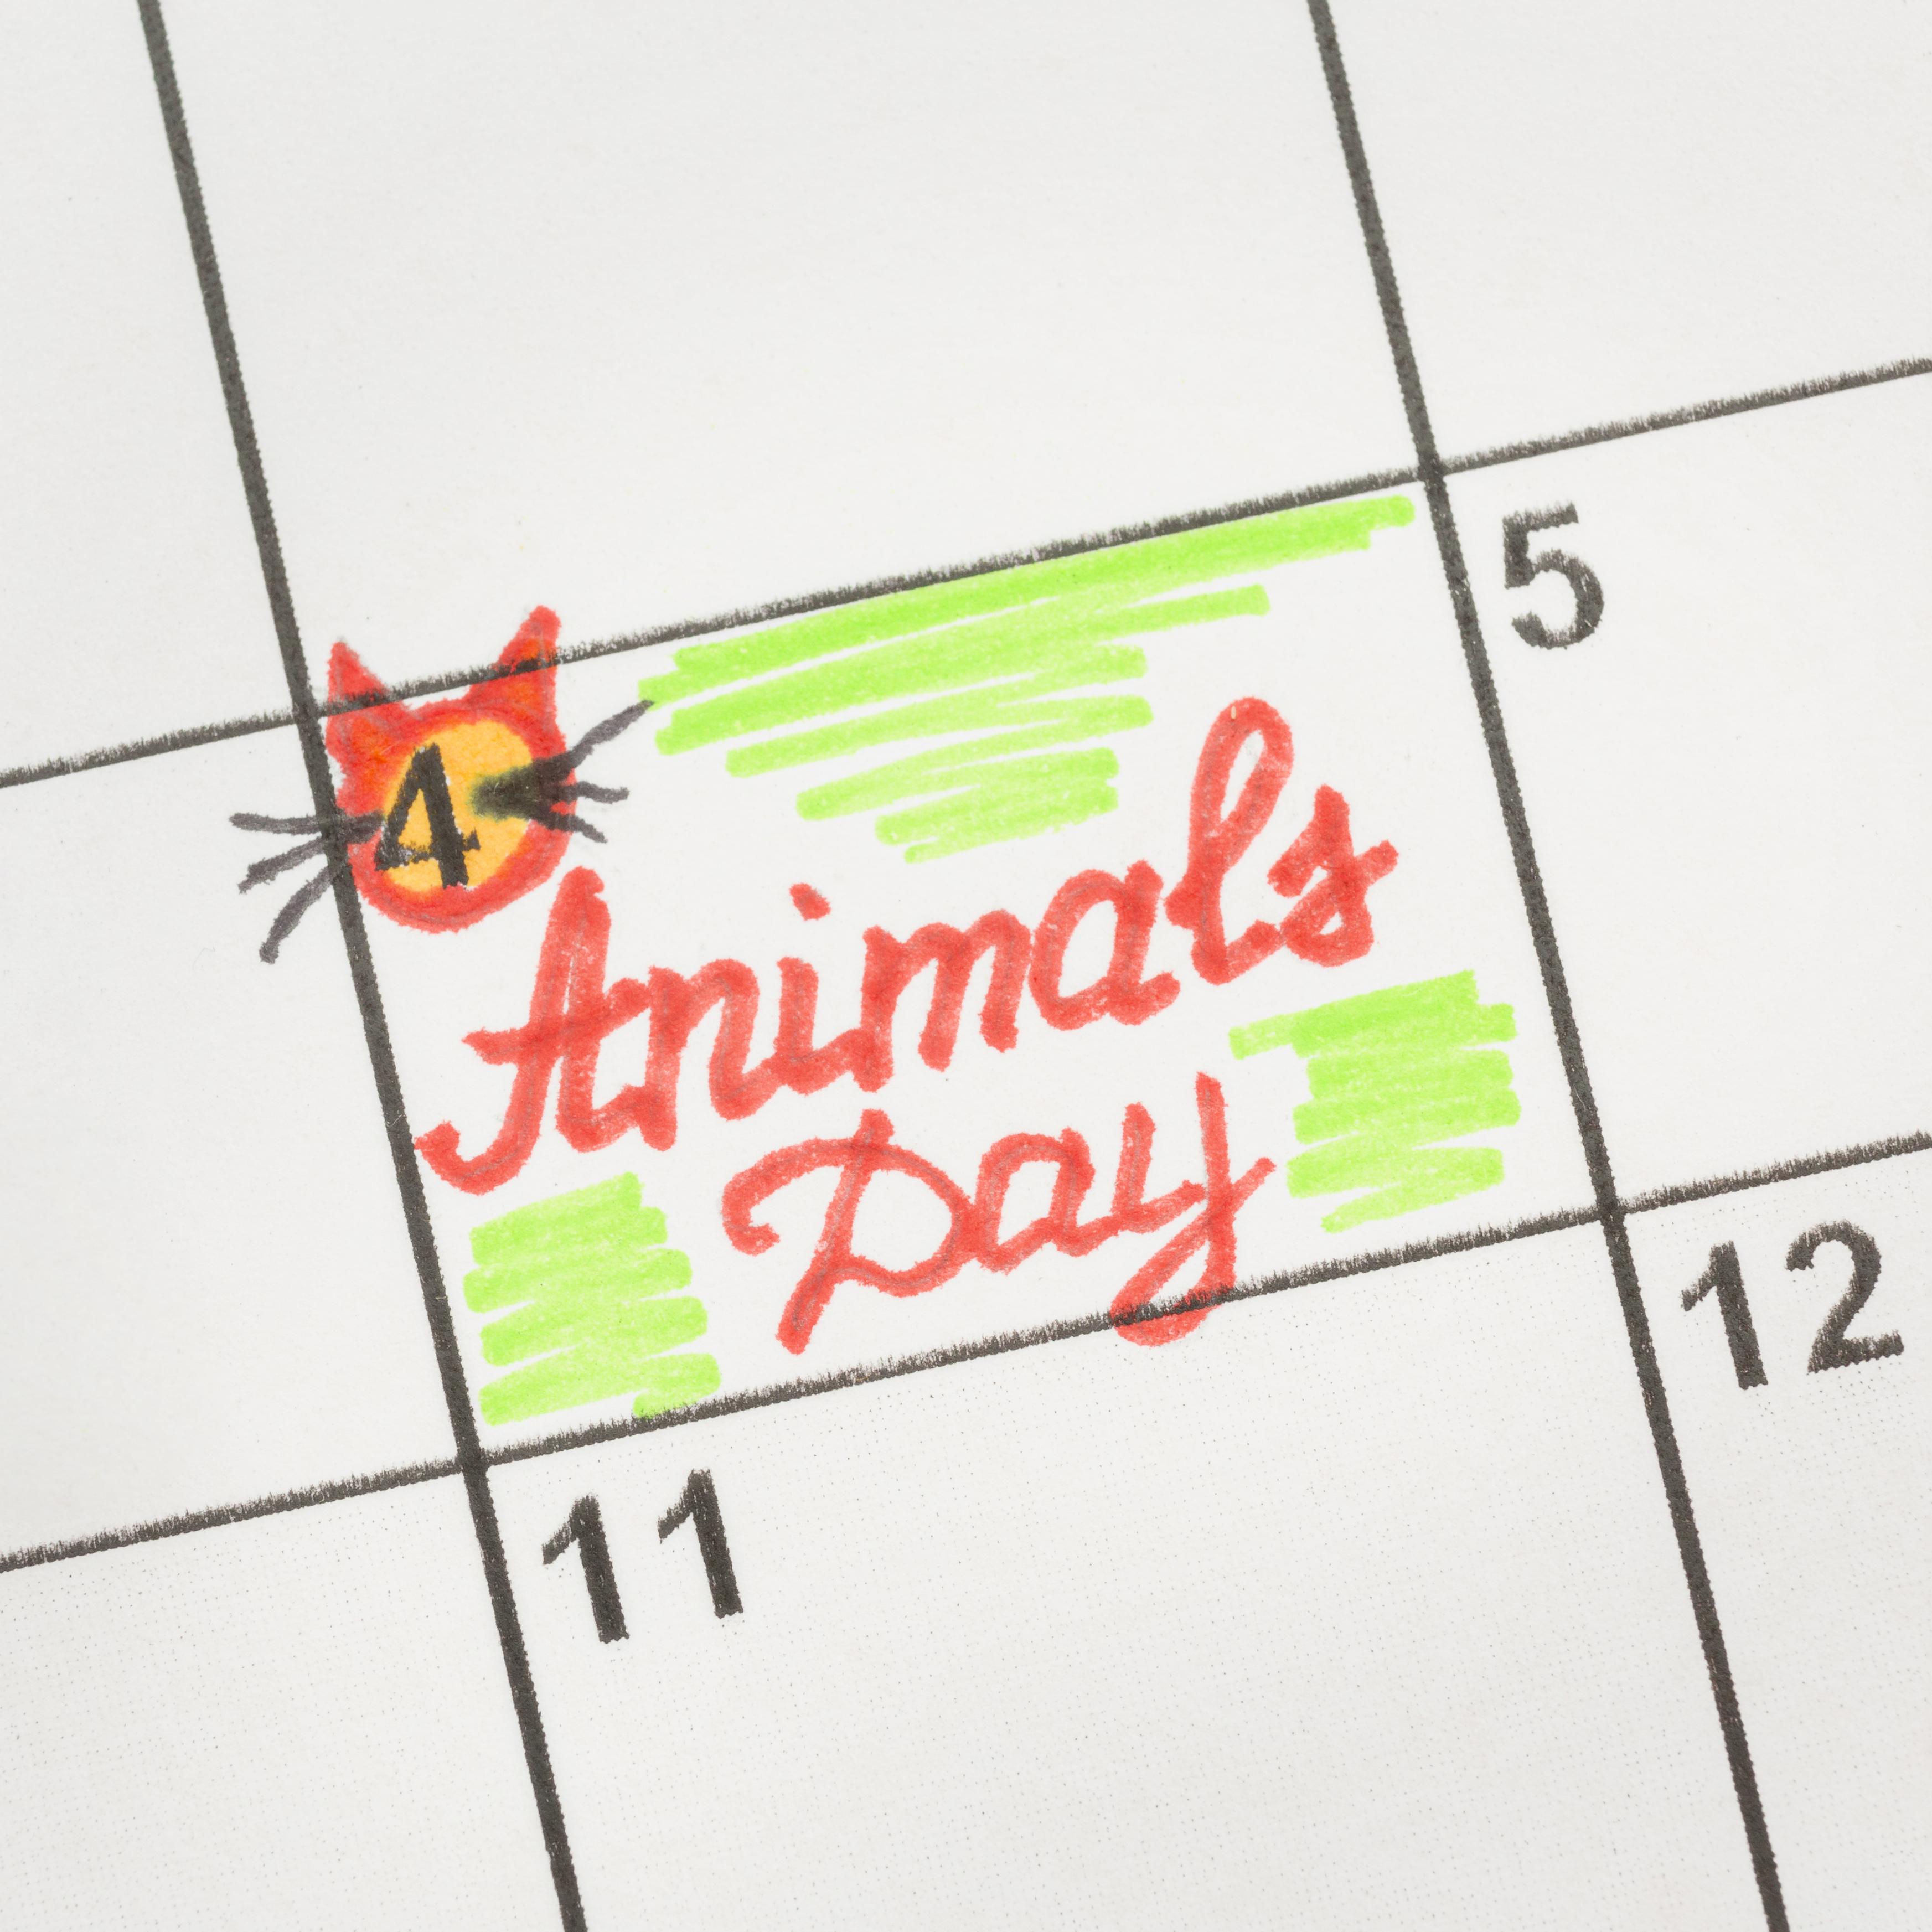 4
5
Animals
Day
11
12